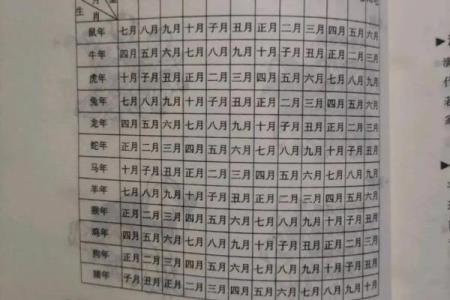 月
生
肖
鼠年 七月 八月 九月 十月 子月 丑月 正月 二月 三月 四月 五月 六月
牛年 四月 五月 六月 七月 八月 九月 十月 子月 丑月 正月 二月 三月
虎年 十月 子月 丑月 正月 二月 三月 四月 五月 六月 七月 八月 九月
兔年 七月 八月 九月 十月 子月 丑月 正月 二月 三月 四月 五月 六月
龙年 四月 五月 六月 七月 八月 九月 十月 子月 丑月 正月 二月 三月
蛇年 正月 二月 三月 四月 五月 六月 七月 八月 九月 十月 子月 丑月
马年 十月 子月 丑月 正月 二月 三月 四月 五月 六月 七月 八月 九月
羊年 七月 八月 九月 十月 子月 丑月 正月 二月 三月 四月 五月 六月
猴年 正月 二月 三月 四月 五月 六月 七月 八月 九月 十月 子月 丑月
鸡年 四月 五月 六月 七月 八月 九月 十月 子月 丑月 正月 二月 三月
狗年 正月 二月 三月 四月 五月 六月 七月 八月 九月 十月 子月 丑月
猪年 子月 丑月 正月 二月 三月 四月 五月 六月 七月 八月 九月 十月